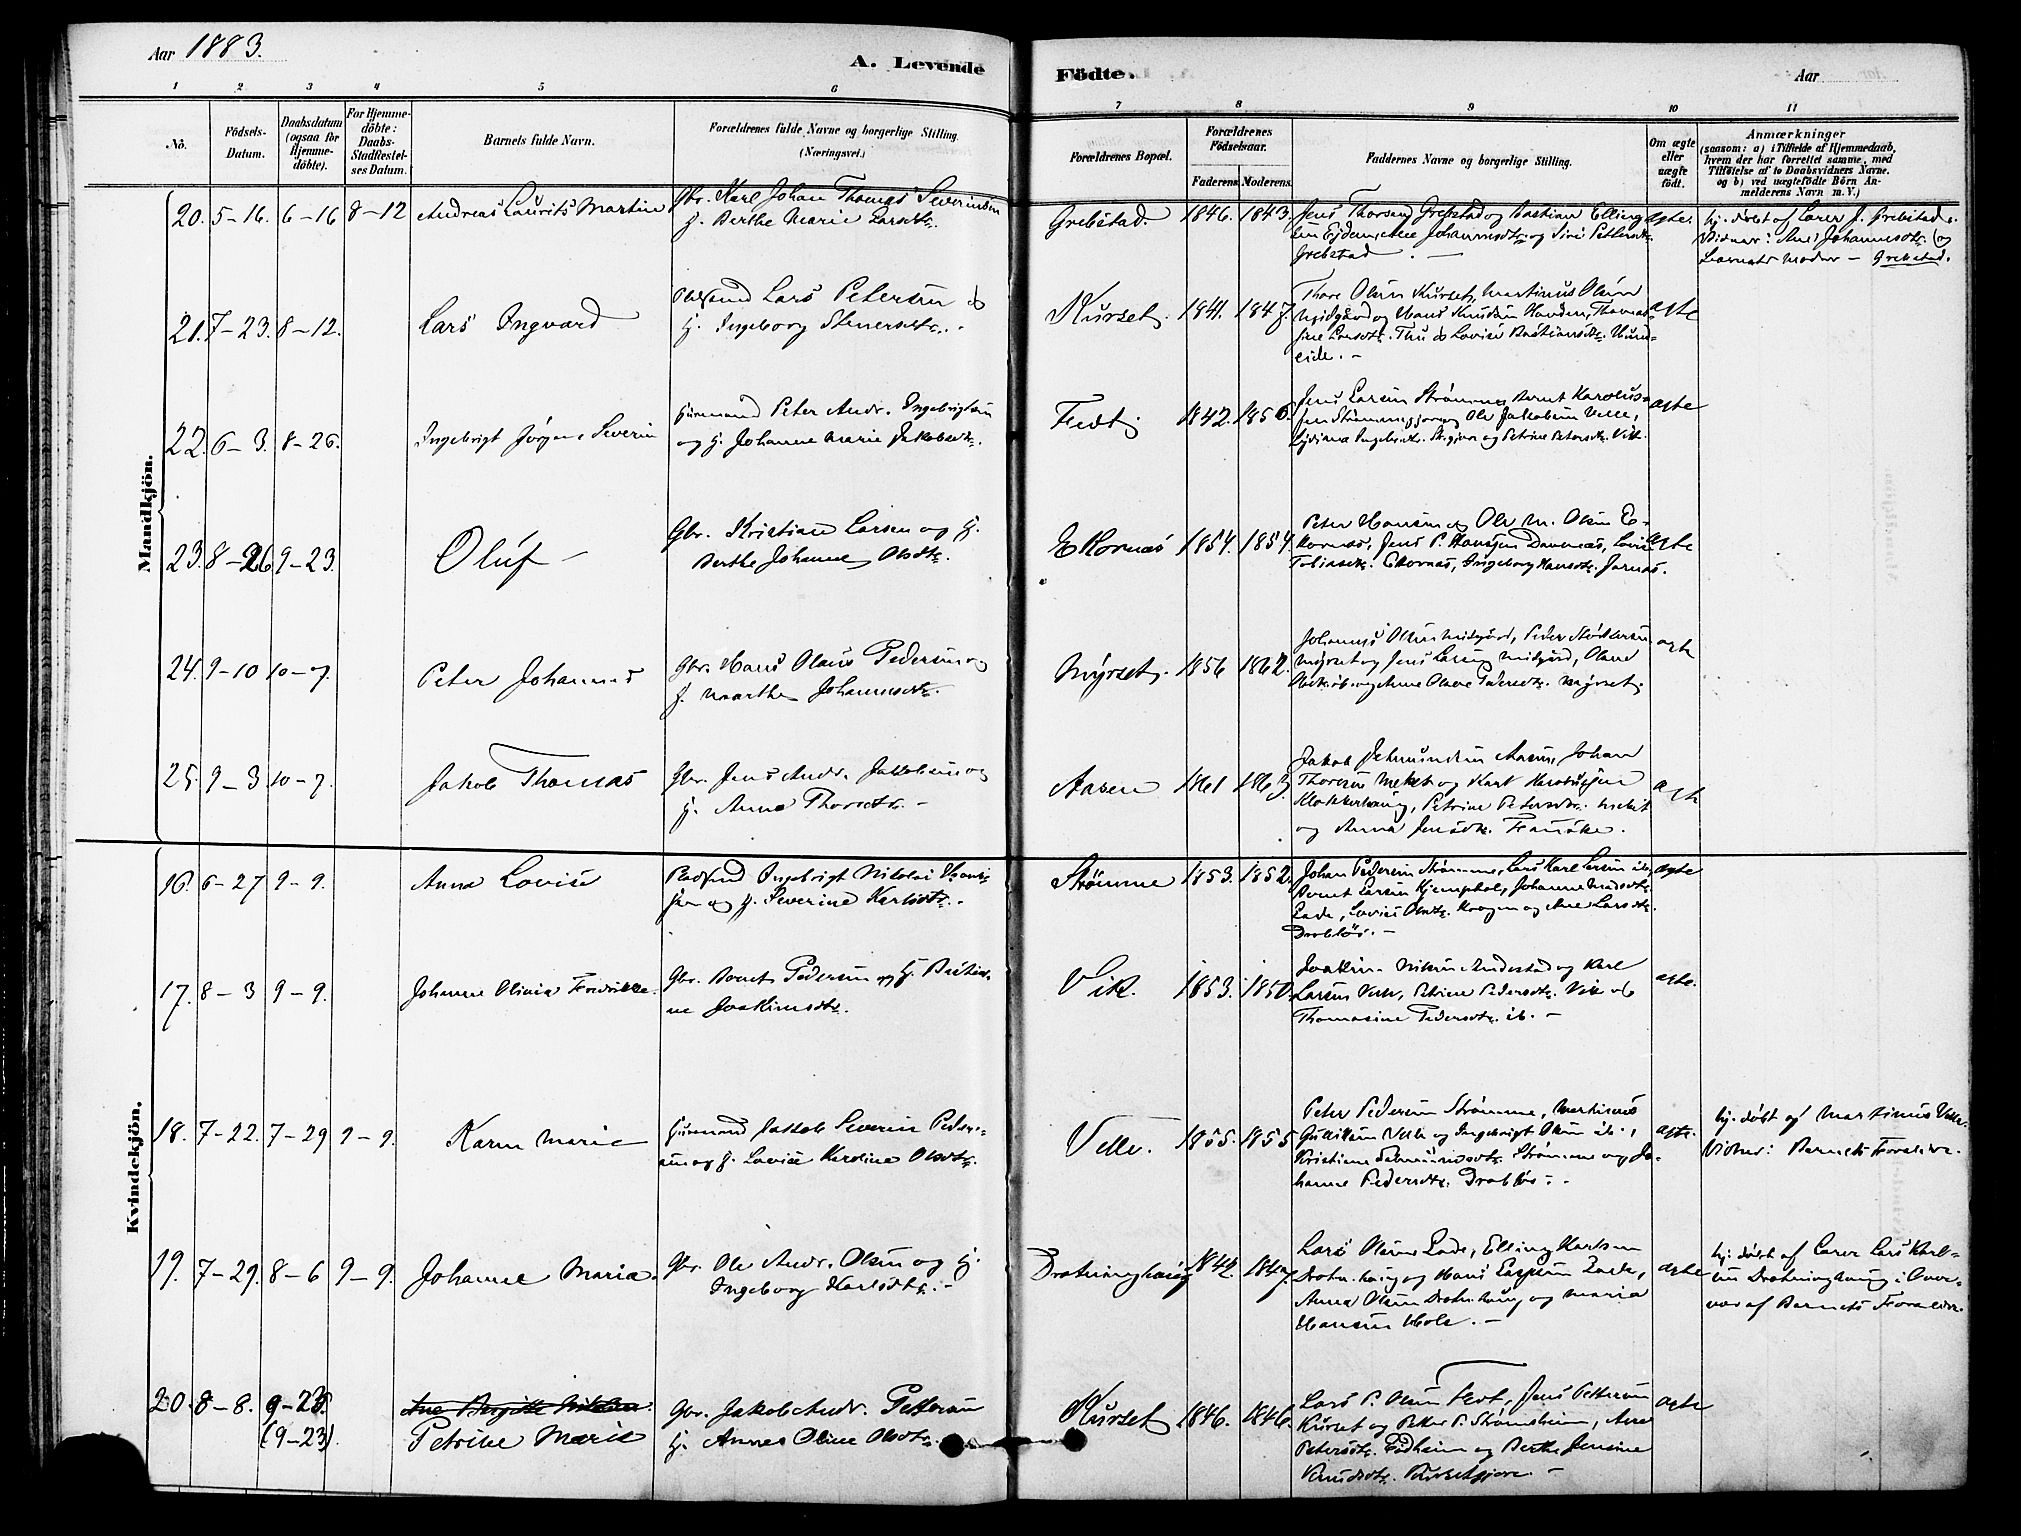 Aar 1883.
A. Levende
Födte.
Aar
1 2 3 4 5 6
7 8 9 10 11
No.
Födsels-Datum.
Daabsdatum (ogsaa for Hjemmedöbte).
For Hjemmedöbte: Daabs-Stadfæstelses Datum.
Barnets fulde Navn.
Forældrenes fulde Navne og borgerlige Stilling. (Næringsvei.)
Forældrenes Bopæl.
Forældrenes Födselsaar.
Faderens. Moderens.
Faddernes Navne og borgerlige Stilling.
Om ægte eller uægte født.
Anmærkninger
(saasom: a) i Tilfælde af Hjemmedaab, hvem der har forrettet samme, med Tilföielse af to Daabsvidners Navne, og b) ved uægtefödte Börn Anmelderens Navn m. V.)
Mandkjön.
20. 5-16. 6-16 8-12 Andreas Laurits Martin
Gbr. Karl Johan Thomas Severinsen
H. Berthe Marie Larsdtr.
Grebstad. 1846. 1843.
Jens Thorsen Grebstad og Bastian Elling
sen Ejdem, Ane Johannesdtr. og Sine Pettersdtr.
Grebstad.
ægte.
hj. døbt af Lærer J. Grebstad.
Vidner: Ane Johannesdtr. og
Barnets Moder - Grebstad.
21. 7-23. 8-12. Lars Ingvard
Lars Petersen &
H. Ingeborg Stenersdtr.
Kurset. 1841. 1847.
Thore Olsen Kurset, Martinus Olsen
og Hans Knudsen
Lovise Bastiansdtr.
eide. -
ægte
22. 6-3. 8-26. Ingebrigt Jørgen Severin
Huusmand Peter Andr. Ingebrigtsen
og H. Johanne Marie Jakobsdtr.
Fedt. 1842. 1856.
Jens Larsen Strømme, Bernt Karolus-
Ole Jakobsen Velle,
og Petrine Petersdtr. Vik.
ægte
23. 8-26 9-23. Oluf -
Gbr. Kristian Larsen og H.
Berthe Johanne Olsdtr.
Ekornæs 1854. 1854.
Peter Hansen og Ole M. Olsen E-
kornæs, Jens P. Hansen Davenæs, Lovise
Tobiasdtr. Ekornæs, Ingeborg Hansdtr. Jarnæs.
ægte
24. 9-10 10-7. Peter Johannes
Gbr. Hans Olaus Pedersen og
H. Marthe Johannesdtr.
Myrset. 1856 1862.
Johannes Olsen Midgård, Peder
Myrset og Jens Larsen Midgård, Olave
og Anne Olave Pedersdtr. Myrset.
ægte
25. 9-3 10-7. Jakob Thomas
Gbr. Jens Andr. Jakobsen og
H. Anna Thorsdtr. -
Aasen 1861 1863.
Jakob Aasen, Johan
Thorsen og Karl
Petrine Petersdtr.
og Anna Jensdtr.
ægte
Kvindekjön.
16. 6-27 9-9. Anna Lovise
Ingebrigt Nikolai
sen og H. Severine Karlsdtr. -
Strømme 1853. 1852.
Johan Pedersen Strømme, Lars Karl Larsen ib.
Bernt Larsen Kjemphol, Johanne
Lade, Lovise Olsdtr. og Ane Larsdtr.
Drabløs. -
ægte
17. 8-3 9-9. Johanne Olivia Fredrikke.
Gbr. Bernt Pedersen og H. Bastia-
ne Joakimsdtr.
Vik. 1853. 1850.
Joakim Nilsen Andestad og Karl
Larsen Velle, Petrine Pedersdtr. Vik og
Thomasine Pedersdtr. ib. -
ægte.
18. 7-22. 7-29 9-9. Karen Marie
Huusmand Jakob Severin Peder-
sen og H. Lovise Karoline Olsdtr.
Velle. 1855. 1855
Peter Pedersen Strømme, Martinus
Gulliksen Velle og Ingebrigt Olsen ib.,
Kristiane Strømme og Jo-
hanne Pedersdtr. Drabløs. -
ægte.
hj. døbt af Martinus Velle.
Vidner: Barnets Forældre.
19. 7-29. 8-6 9-9. Johanne Maria.
Gbr. Ole Andr. Olsen og H.
Ingeborg Karlsdtr. -
Drotninghaug 1842. 1847.
Lars Olsen Lade, Elling Karlsen
Drotn.haug og Hans Lade,
Anna Olsen Drotn.haug og Maria
Hansen Hole. -
ægte
hj. døbt af Lærer Lars Karl-
sen Drotninghaug i Over-
vær af Barnets Forældre.
20. 8-8. 9-23. (9-23). Petrine Marie
Gbr. Jakob Andr. Pettersen
H. Anne Oline Olsdtr.
Kurset 1846. 1846.
Lars P. Olsen Fedt, Jens Pettersen
Kurset og Petter P. Strømsheim, Ane
Petersdtr. Fedheim og Berthe Jensine
Knudsdtr. -
ægte